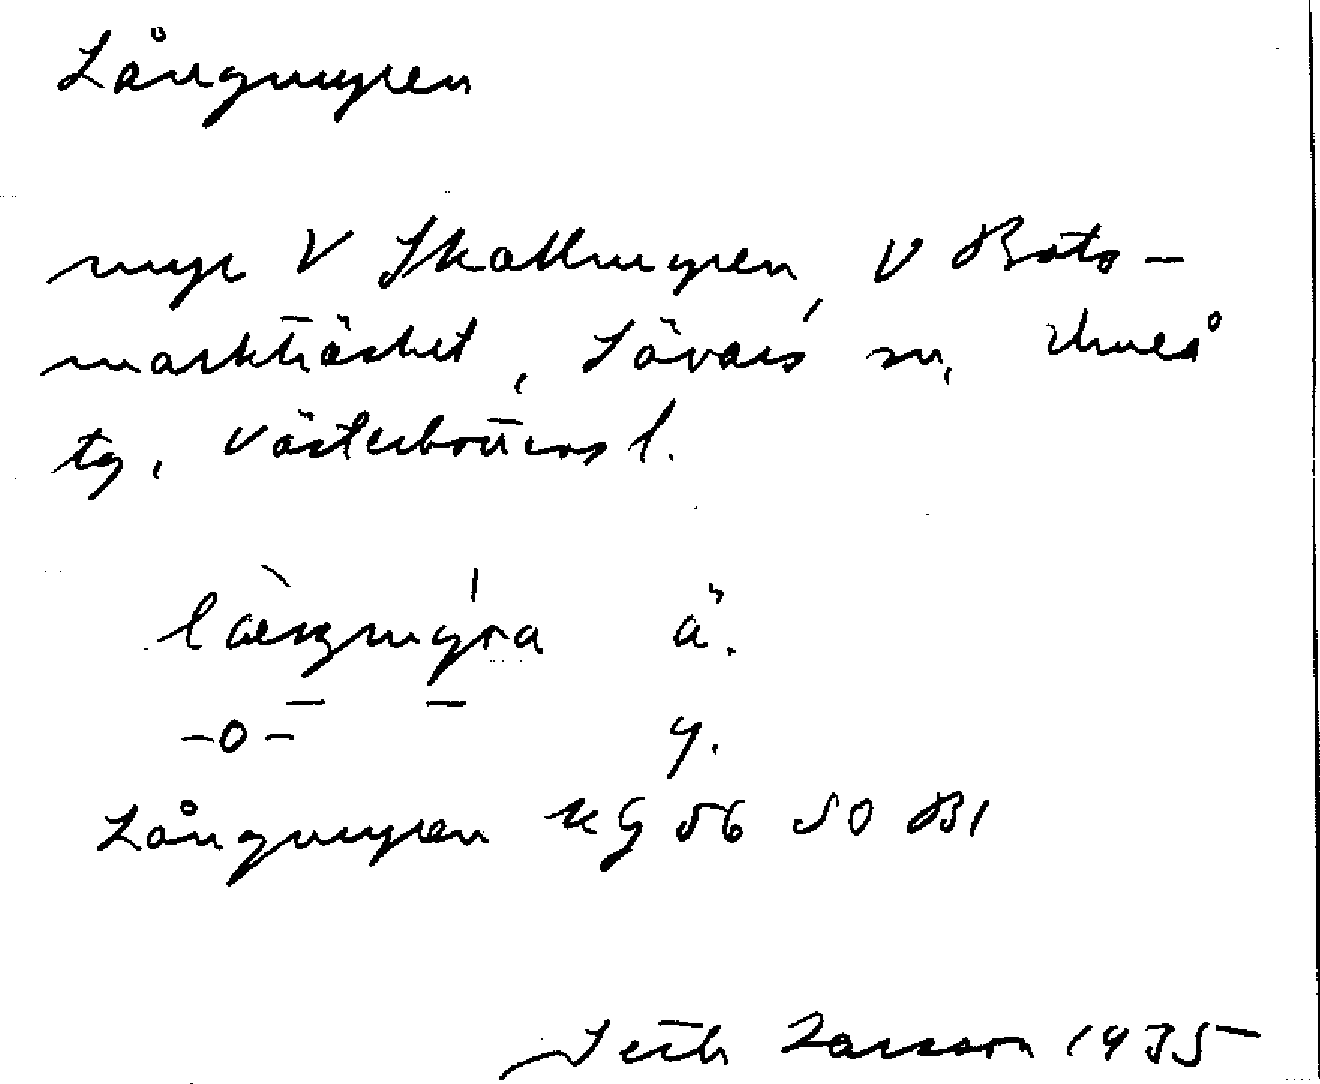 Långmyren
myr V Skallmyren, V Bots-
markträsket, Sävars sn, Umeå
tg, Västerbottens l.
långmýra ä.
-o- y.
Långmyren KG 56 50 B1
Seth Larsson 1935